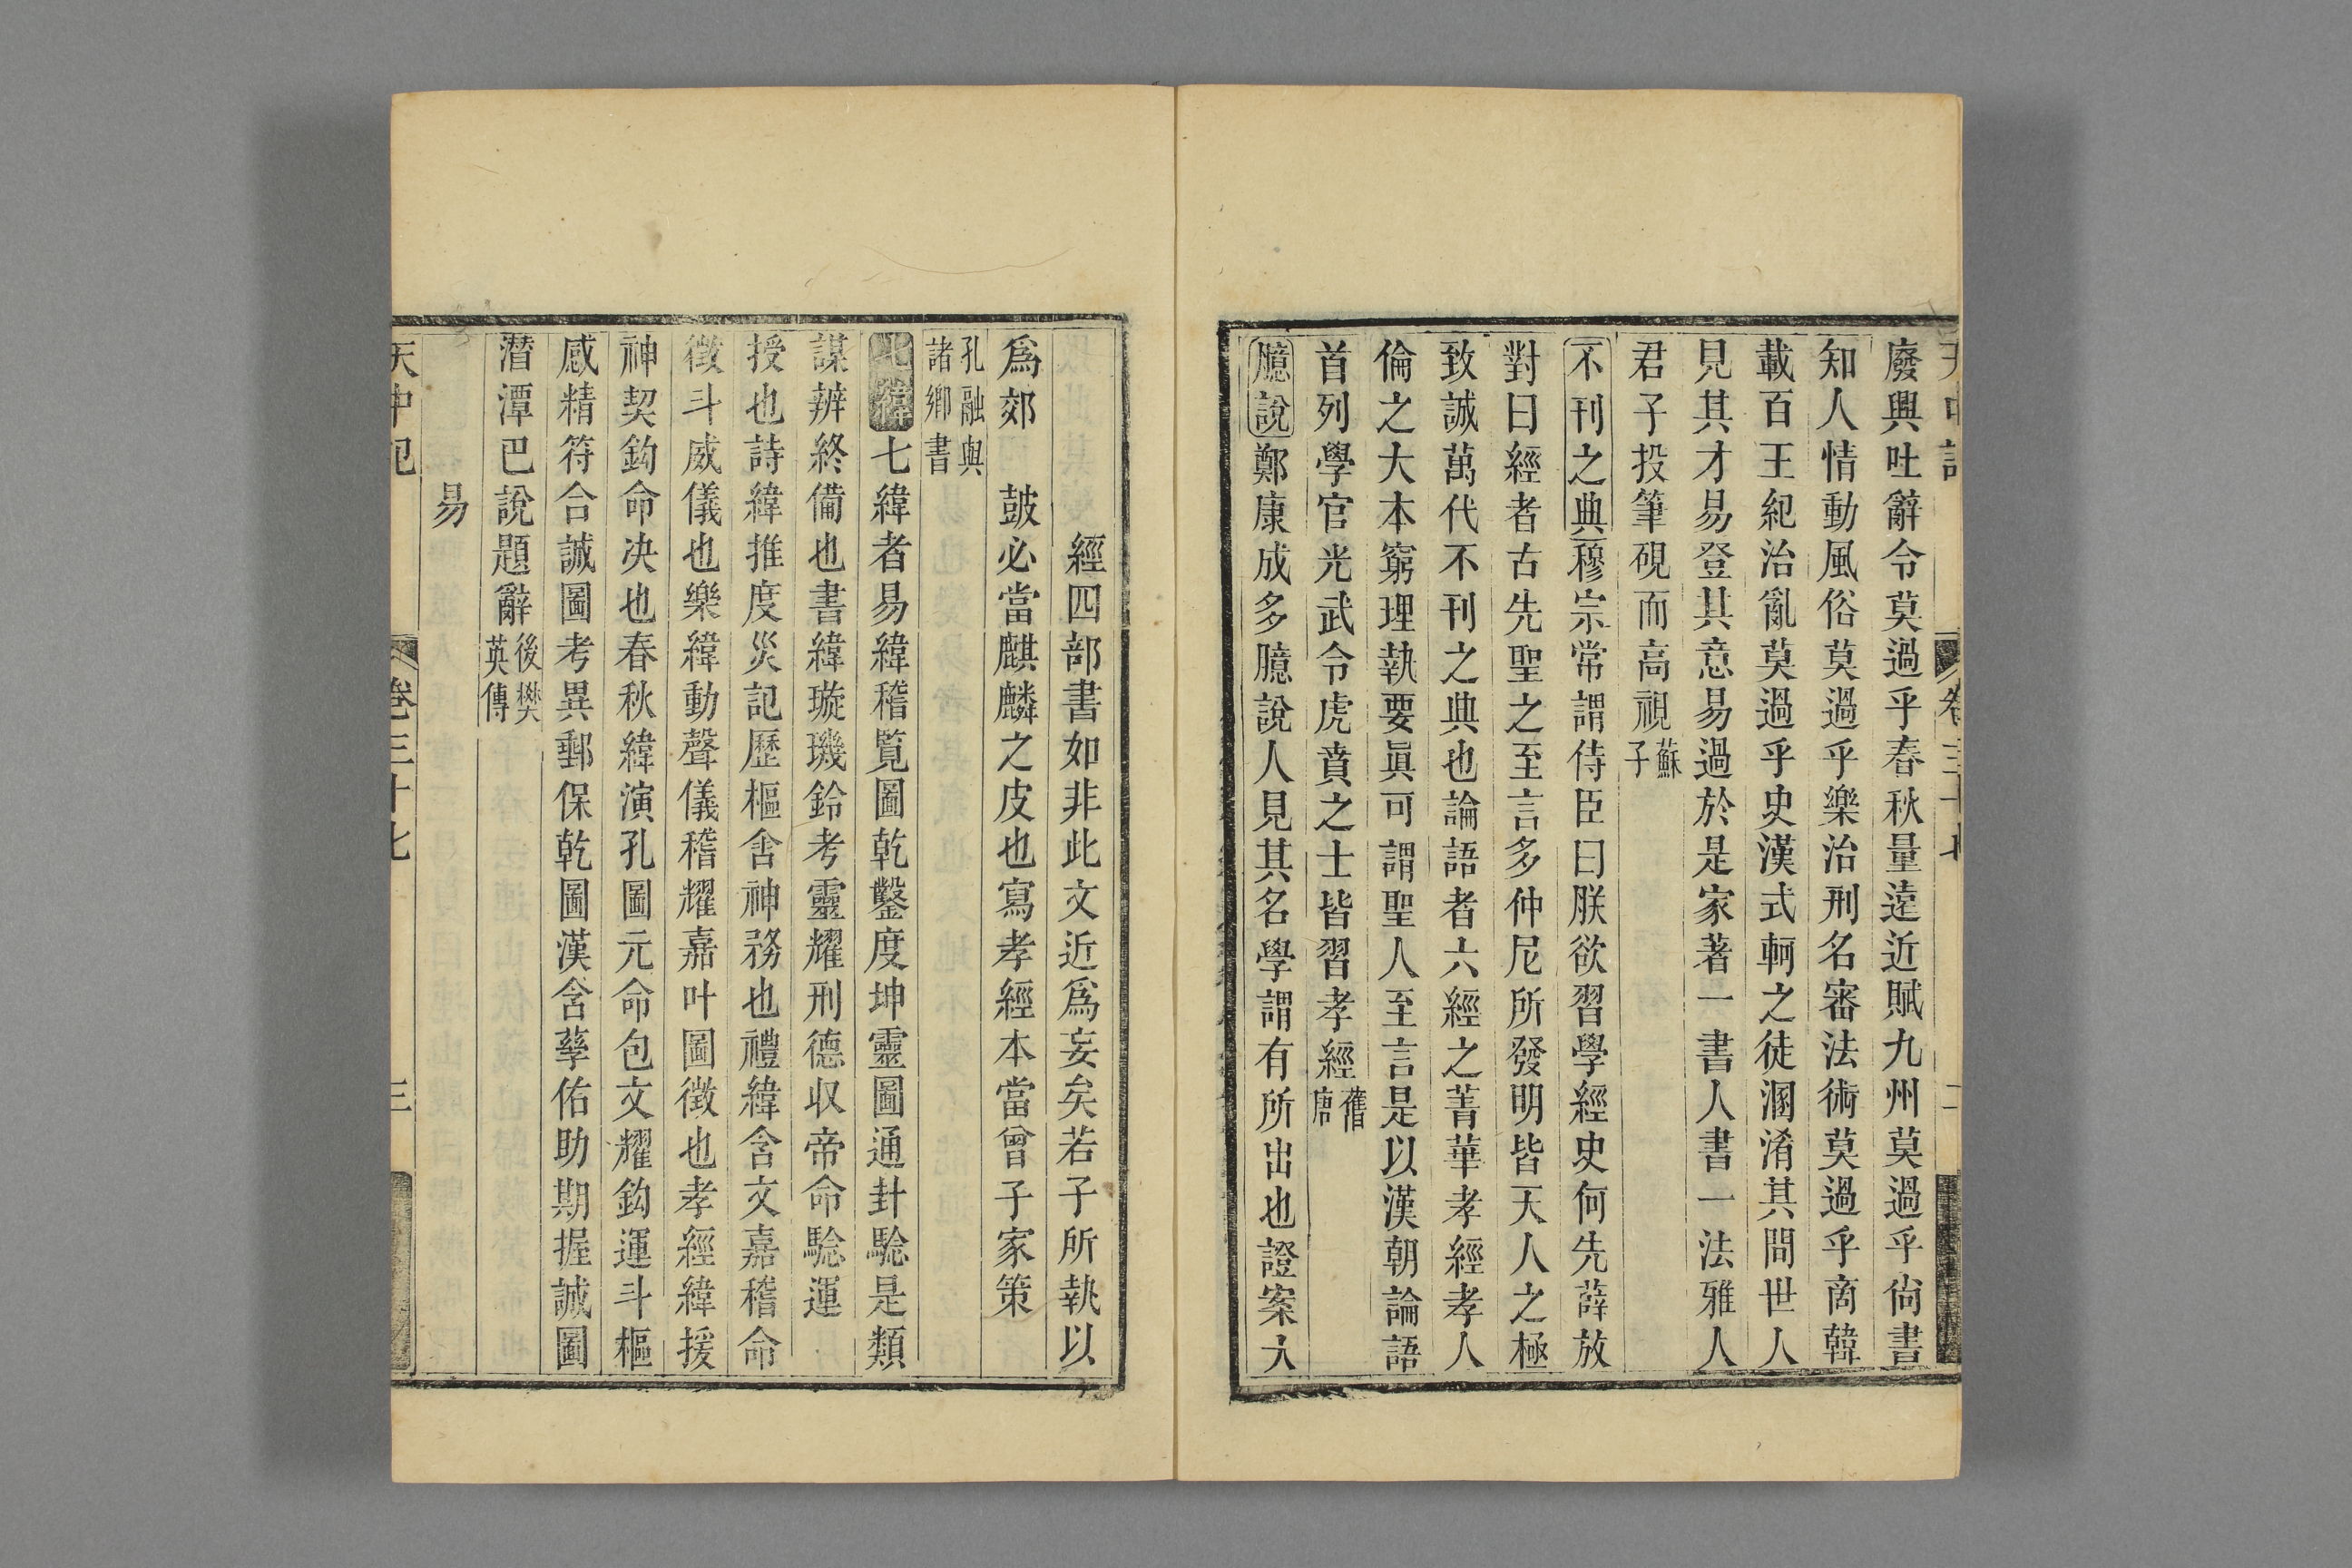 天中記 卷三十七 二
廢興吐辭令莫過乎春秋量遠近賦九州莫過乎尙書
知人情動風俗莫過乎樂治刑名審法術莫過乎商韓
載百王紀治亂莫過乎史漢式軻之徒溷淆其間世人
見其才易登其意易過於是家著一書人書一法雅人
君子投筆硯而高視蘇子
不刊之典穆宗常謂侍臣曰朕欲習學經史何先薛放
對曰經者古先聖之至言多仲尼所發明皆天人之極
致誠萬代不刊之典也論語者六經之菁華孝經孝人
倫之大本窮理執要眞可謂聖人至言是以漢朝論語
首列學官光武令虎賁之士皆習孝經舊唐
臆說鄭康成多臆說人見其名學謂有所出也證案大
經四部書如非此文近爲妄矣若子所執以
爲郊 鼓必當麒麟之皮也寫孝經本當曾子家策
孔融與諸鄉書
七緯者易緯稽覧圖乾鑿度坤靈圖通卦驗是類
謀辨終備也書緯璇璣鈐考靈耀刑德収帝命驗運
授也詩緯推度災記歷樞含神務也禮緯含文嘉稽命
徵斗威儀也樂緯動聲儀稽耀嘉叶圖徵也孝經緯援
神契鈎命决也春秋緯演孔圖元命包文耀鈎運斗樞
感精符合誠圖考異郵保乾圖漢含孳佑助期握誠圖
潛潭巴說題辭後樊英傳
易
天中記 卷三十七 三